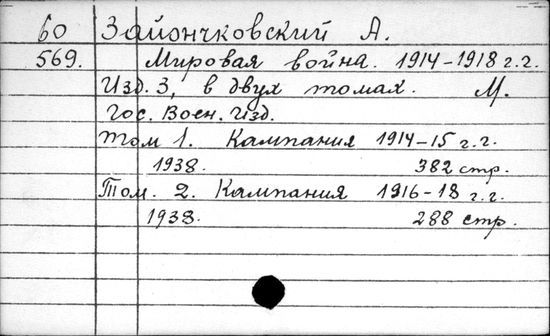 60 Зайончковский А.
569. Мировая война. 1914-1918 г.г.
Изд. 3, в двух томах. М.
Гос. Воен. Изд.
Том 1. Кампания 1914-15 г.г.
1938. 382 стр.
Том. 2. Кампания 1916-18 г.г.
1938. 288 стр.